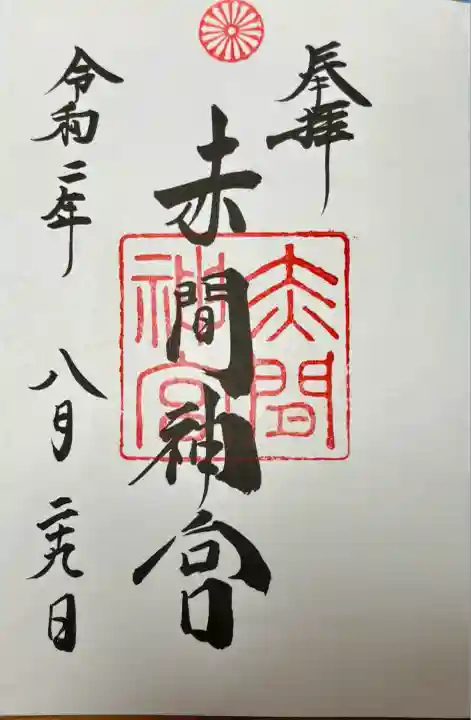 奉拝
赤間神宮
赤間神宮
令和二年 八月 二十九日